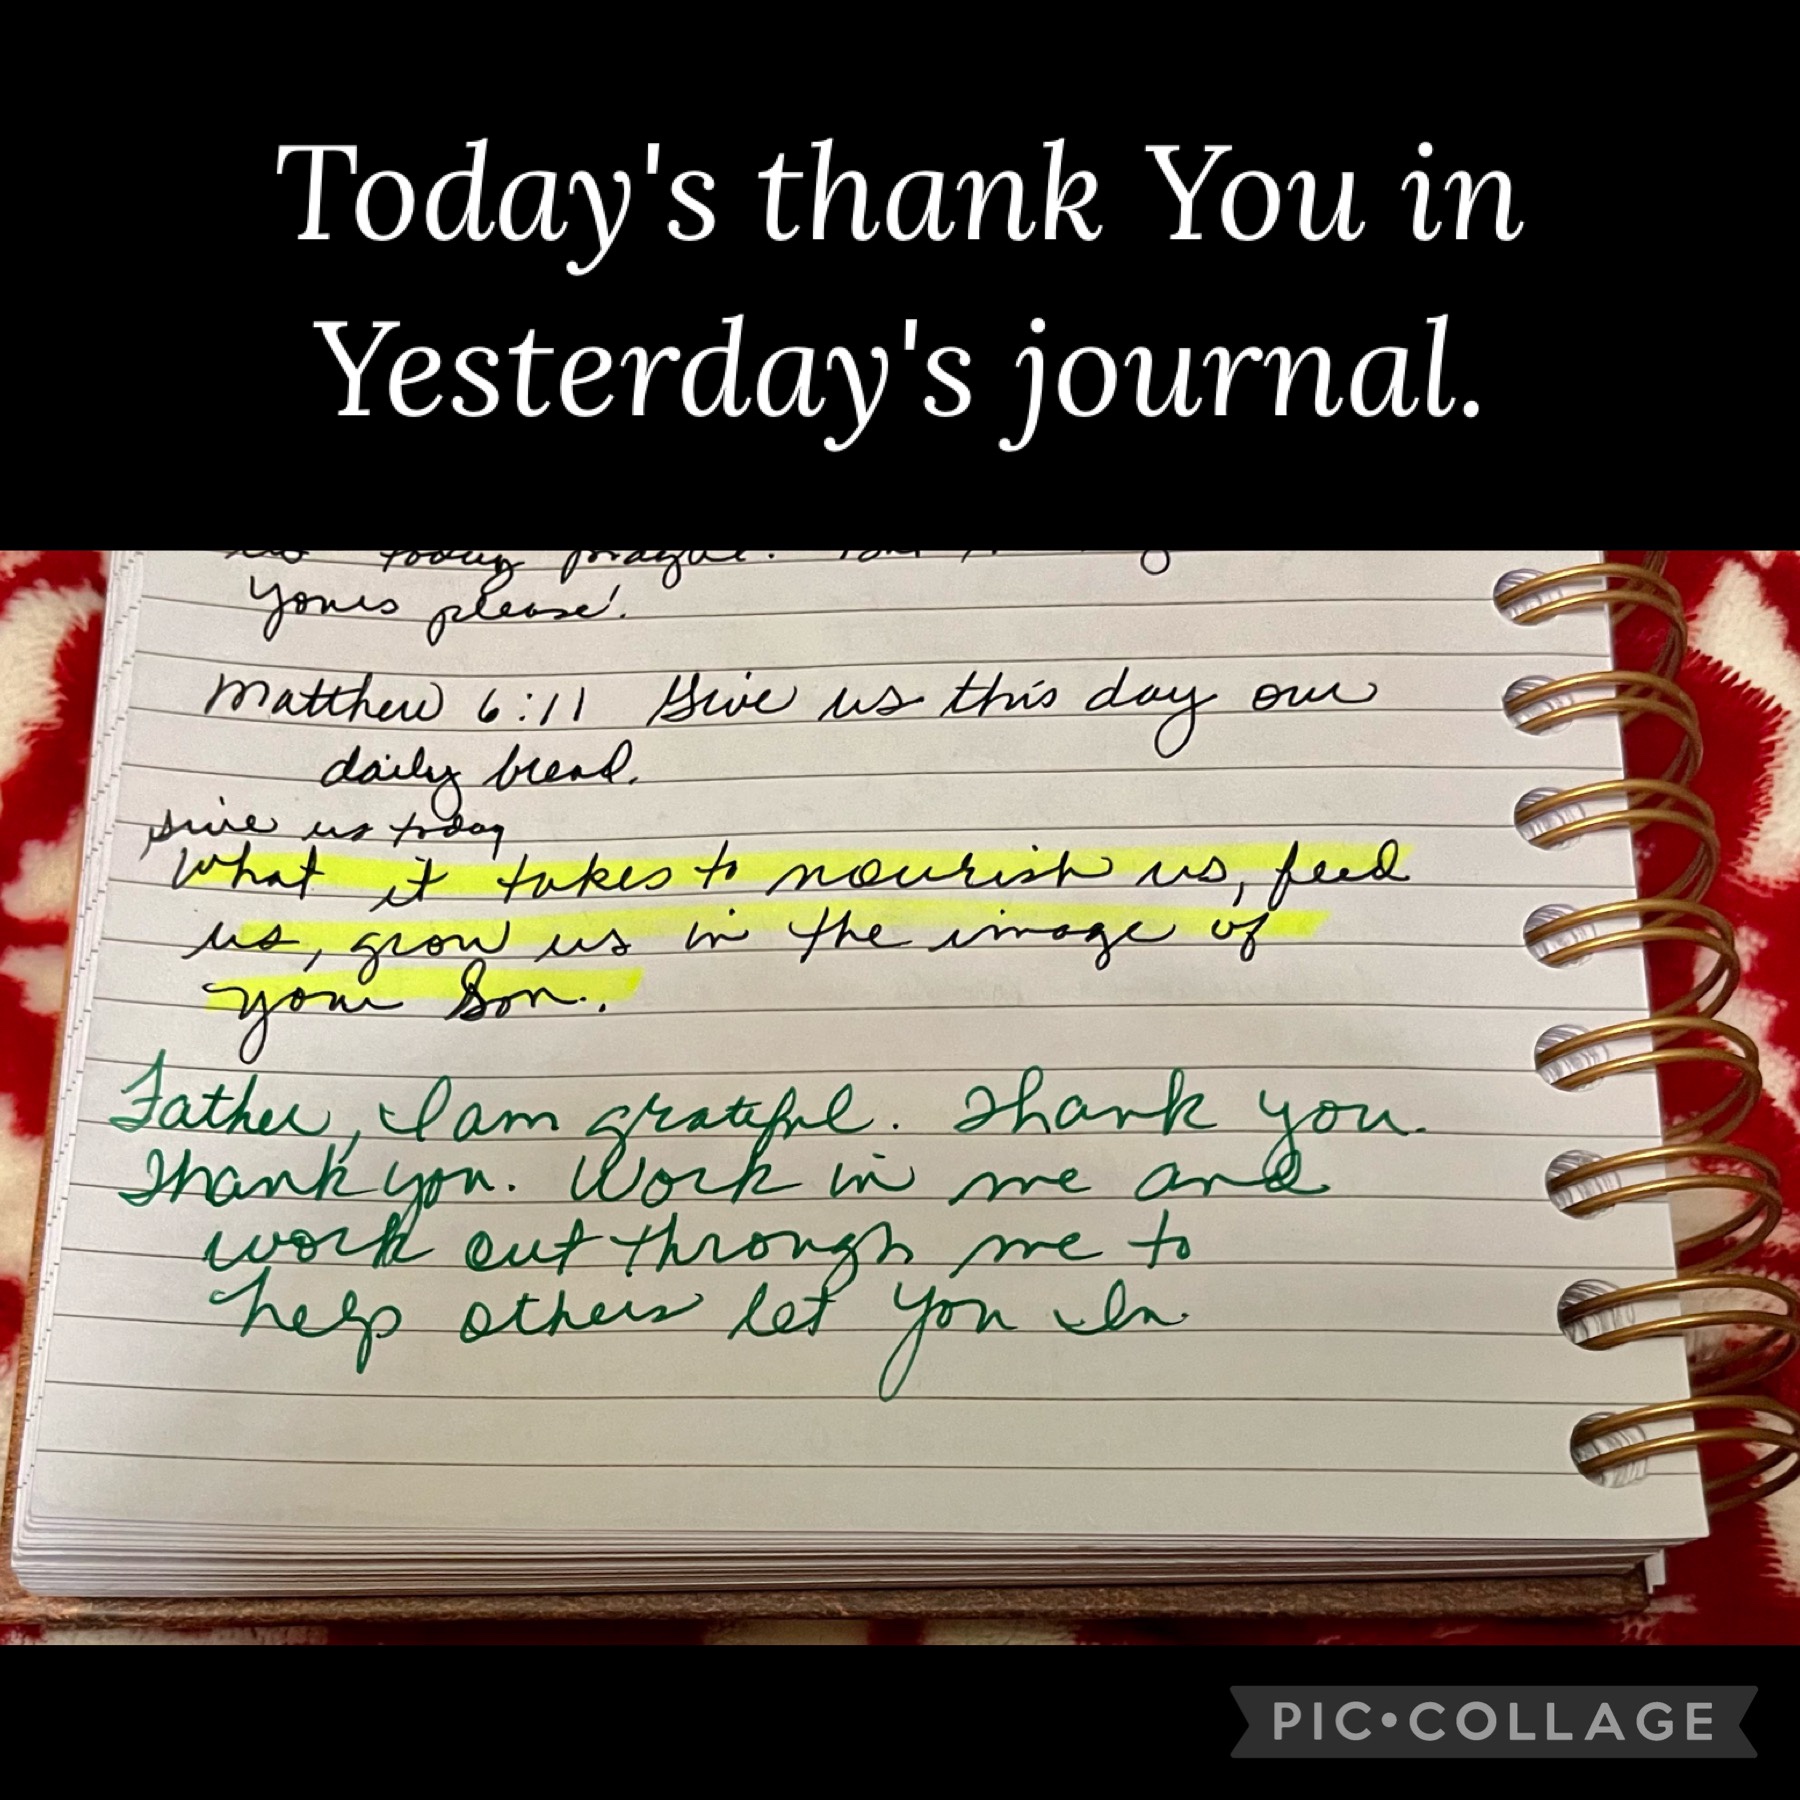 Today's thank You in
Yesterday's journal.
Yours please!
Matthew 6:11 Give us this day our
daily bread.
give us today
What it takes to nourish us, feed
us, grow us in the image of
your Son.
Father, I am grateful. Thank you.
Thank you. Work in me and
work out through me to
help others let You In.
PIC•COLLAGE